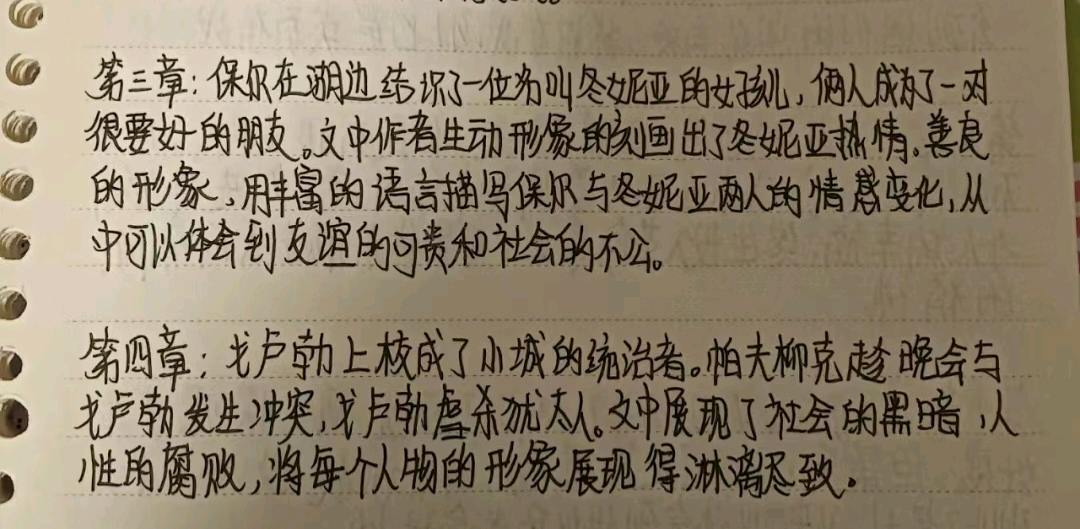 第三章：保尔在湖边结识了一位名叫冬妮亚的女孩儿，俩人成为了一对
很要好的朋友。文中作者生动形象的刻画出了冬妮亚热情、善良
的形象，用丰富的语言描写保尔与冬妮亚两人的情感变化，从
中可以体会到友谊的可贵和社会的不公。
第四章：戈卢勃上校成了小城的统治者。帕夫柳克趁晚会与
戈卢勃发生冲突，戈卢勃虐杀犹太人。文中展现了社会的黑暗，人
性的腐败，将每个人物的形象展现得淋漓尽致。